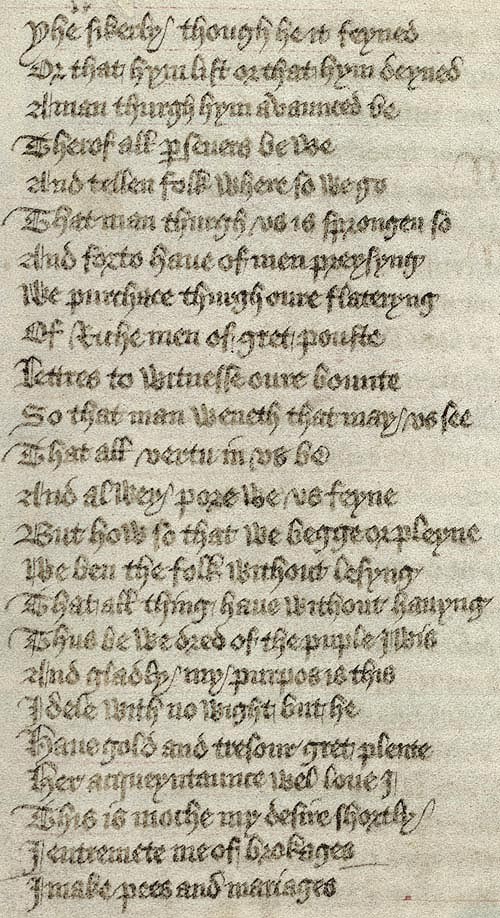 Yhe sikerly though he it feyned
Or that hym list or that hym deyned
A man thurgh hym avaunced be
Therof all pseuers be we
And tellen folk where so we go
That man thurgh vs is sprongen so
And forto haue of men preysyng
We purchace thurgh oure flateryng
Of Riche men of gret pouste
Lettres to witnesse oure bounte
So that man weneth that may vs see
That all vertu in vs be
And alwey pore we vs feyne
But how so that we begge or pleyne
We ben the folk without lesyng
That all thing haue without hauyng
Thus be we dred of the puple Iwis
And gladly my purpos is this
I dele with no wight but he
Haue gold and tresour gret plente
Her acqueyntaunce wel loue I
This is moche my desire shortly
I entremete me of brokages
I make pees and mariages